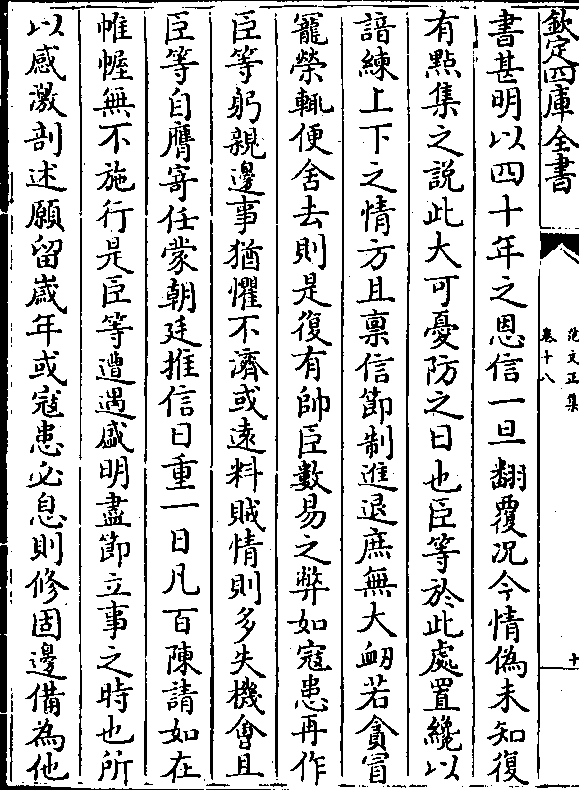 欽定四庫全書
范文正集
卷十八
十
書甚明以四十年之恩信一旦翻覆况今情偽未知復
有點集之說此大可憂防之日也臣等於此處置纔以
諳練上下之情方且稟信節制進退庶無大衂若貪冒
寵榮輒便舍去則是復有帥臣數易之弊如寇患再作
臣等躬親邊事猶懼不濟或遠料賊情則多失機會且
臣等自膺寄任蒙朝廷推信日重一日凡百陳請如在
帷幄無不施行是臣等遭遇盛明盡節立事之時也所
以感激剖述願留嵗年或寇患必息則修固邊備為他